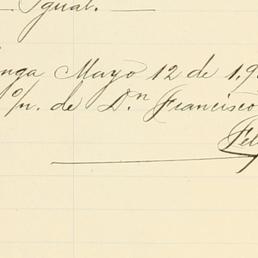 Igual.
nga Mayo 12 de 1.9
c/n. de Dn Francisco
Fel